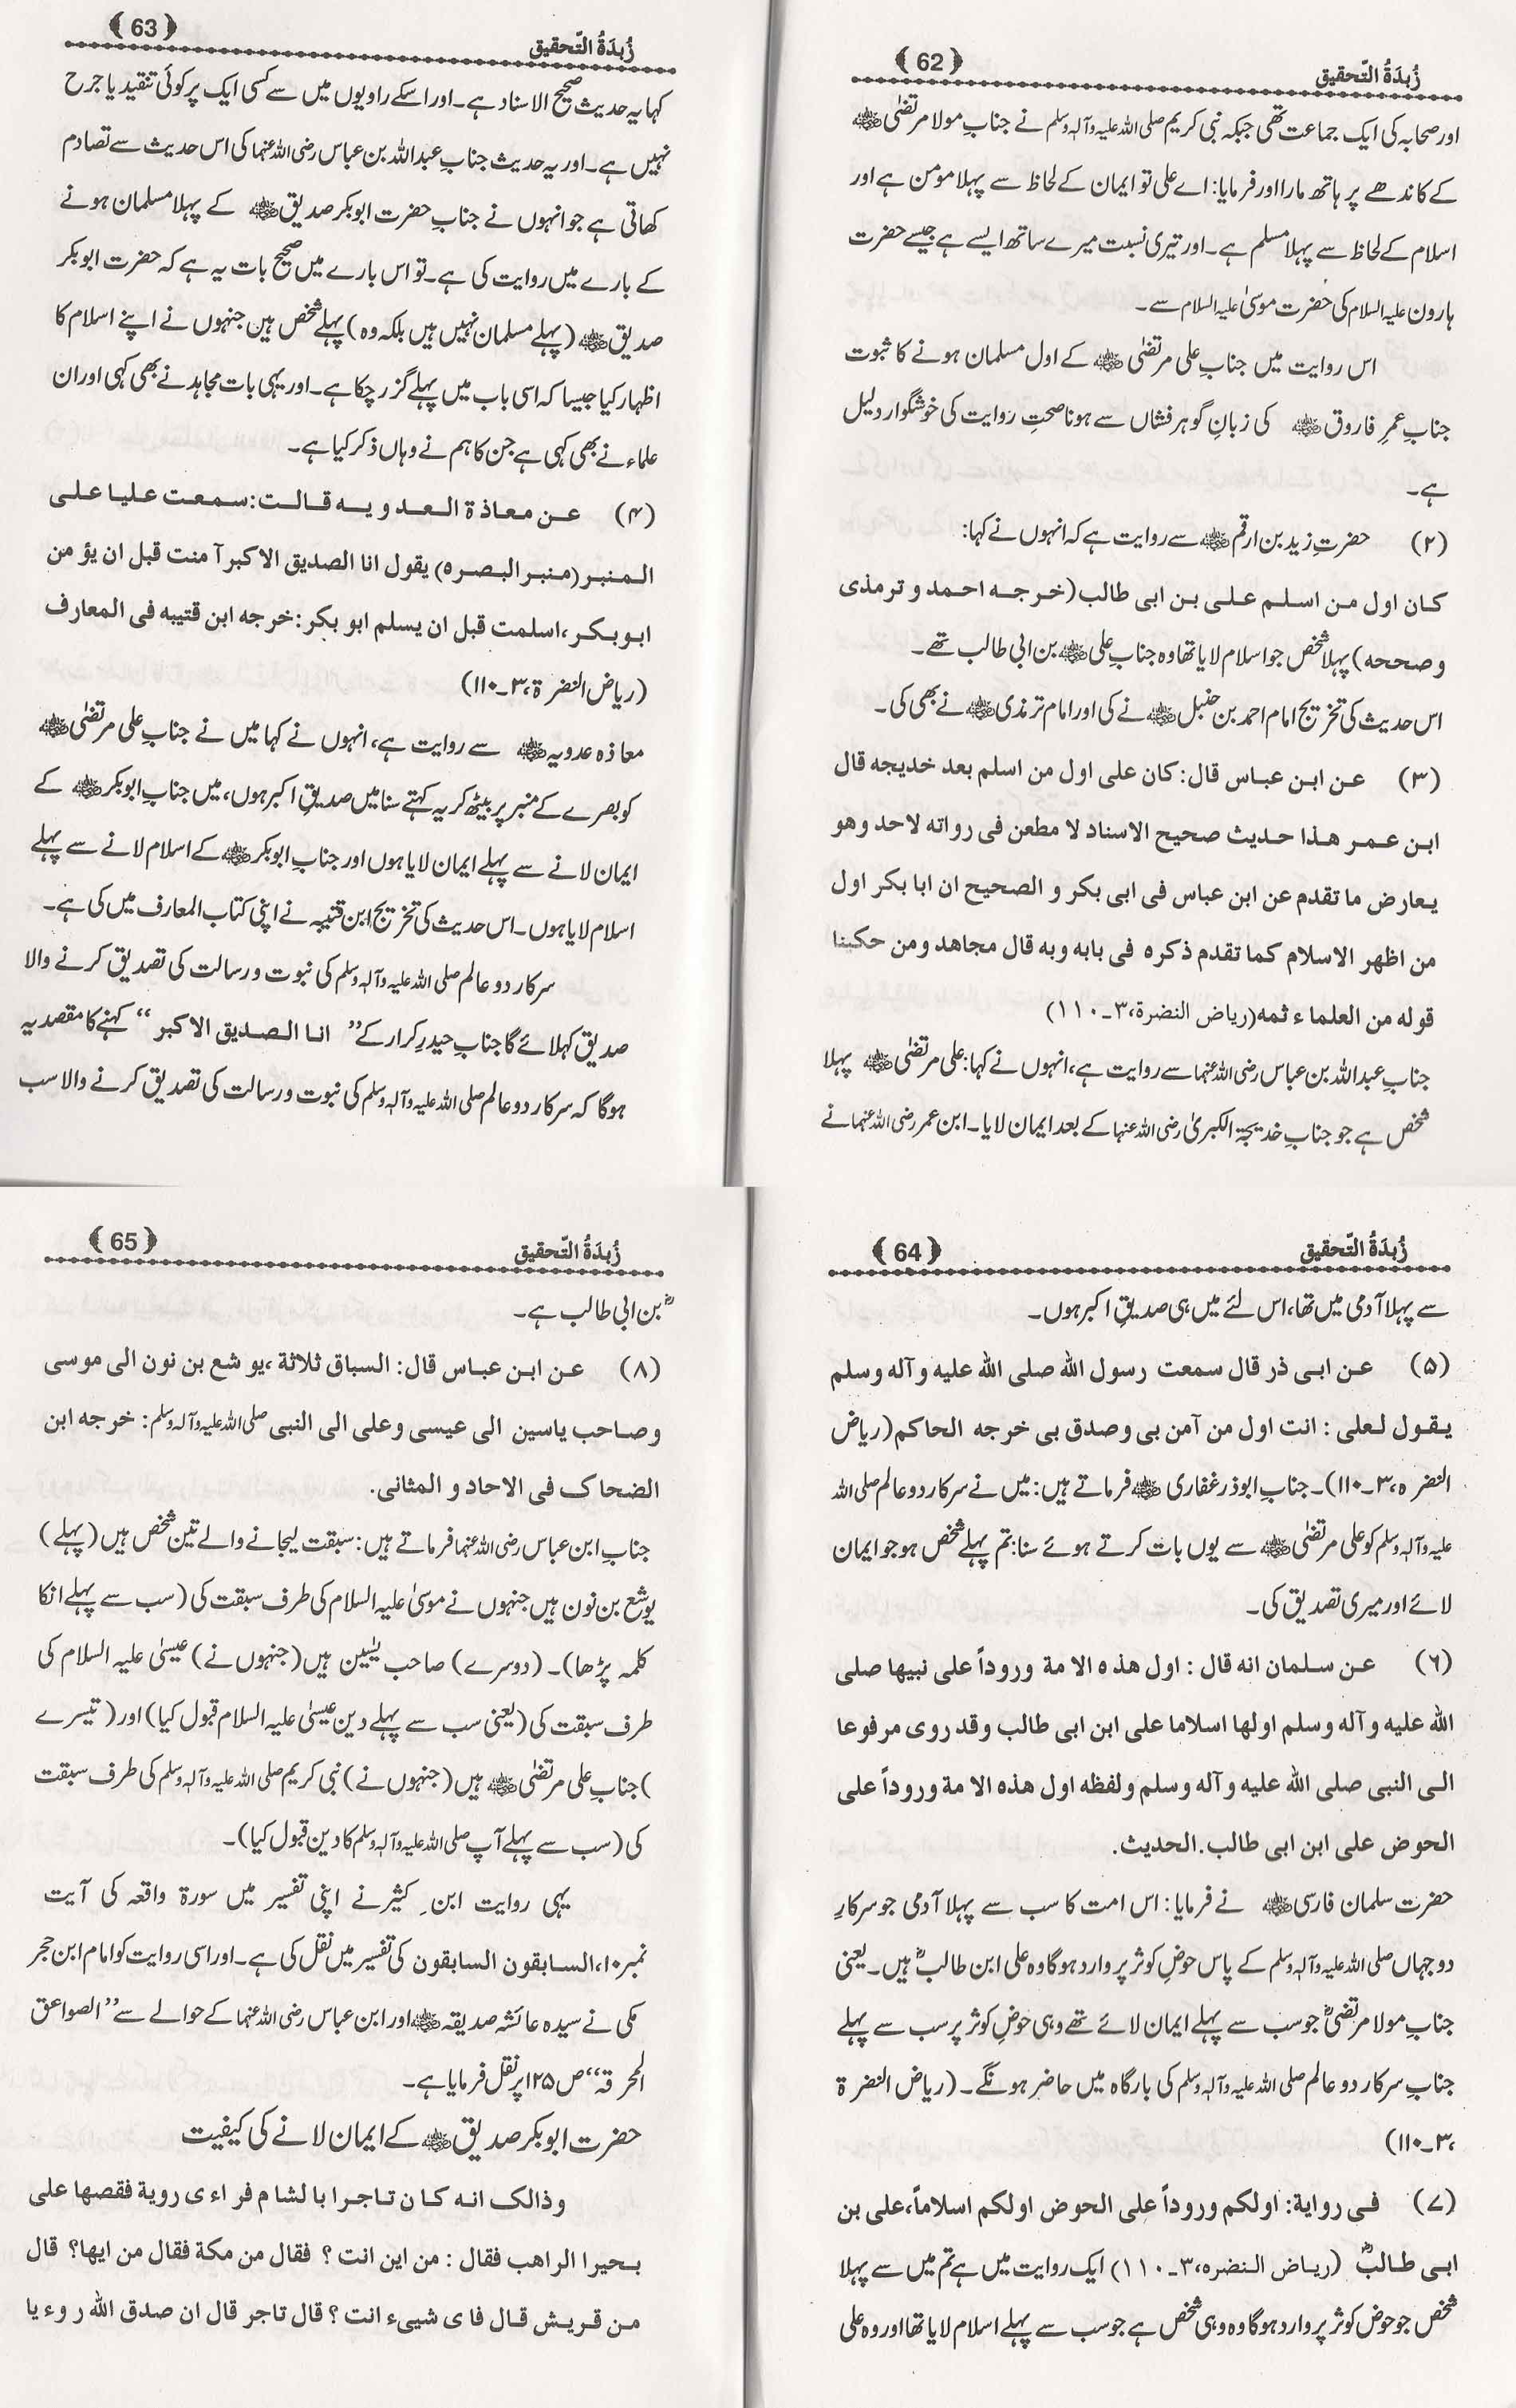 زُبدَةُ التّحقیق ﴿62﴾
اور صحابہ کی ایک جماعت تھی جبکہ نبی کریم صلی اللہ علیہ وآلہ وسلم نے جنابِ مولا مرتضٰی ؓ
کے کاندھے پر ہاتھ مارا اور فرمایا: اے علی تو ایمان کے لحاظ سے پہلا مومن ہے اور
اسلام کے لحاظ سے پہلا مسلم ہے۔ اور تیری نسبت میرے ساتھ ایسے ہے جیسے حضرت
ہارون علیہ السلام کی حضرت موسیٰ علیہ السلام سے۔
اس روایت میں جنابِ علی مرتضٰی ؓ کے اول مسلمان ہونے کا ثبوت
جنابِ عمرِ فاروق ؓ کی زبانِ گوہر فشاں سے ہونا صحتِ روایت کی خوشگوار دلیل
ہے۔
(۲) حضرتِ زید بن ارقم ؓ سے روایت ہے کہ انہوں نے کہا:
کان اول من اسلم علی بن ابی طالب (خرجه احمد و ترمذی
وصححه) پہلا شخص جو اسلام لایا تھا وہ جنابِ علی ؓ بن ابی طالب تھے۔
اس حدیث کی تخریج امام احمد بن حنبل ؓ نے کی اور امام ترمذی ؓ نے بھی کی۔
(۳) عن ابن عباس قال: کان علی اول من اسلم بعد خدیجه قال
ابن عمر هذا حدیث صحیح الاسناد لا مطعن فی رواته لاحد وهو
یعارض ما تقدم عن ابن عباس فی ابی بکر و الصحیح ان ابا بکر اول
من اظهر الاسلام کما تقدم ذکره فی بابه وبه قال مجاهد ومن حکینا
قوله من العلماء ثمه (ریاض النضرة،۳۔۱۱۰)
جنابِ عبداللہ بن عباس رضی اللہ عنہما سے روایت ہے، انہوں نے کہا: علی مرتضٰی ؓ پہلا
شخص ہے جو جنابِ خدیجۃ الکبریٰ رضی اللہ عنہا کے بعد ایمان لایا۔ ابن عمر رضی اللہ عنہما نے
زُبدَةُ التّحقیق ﴿63﴾
کہا یہ حدیث صحیح الاسناد ہے۔ اور اسکے راویوں میں سے کسی ایک پر کوئی تنقید یا جرح
نہیں ہے۔ اور یہ حدیث جنابِ عبداللہ بن عباس رضی اللہ عنہما کی اس حدیث سے تصادم
کھاتی ہے جو انہوں نے جنابِ حضرت ابوبکر صدیق ؓ کے پہلا مسلمان ہونے
کے بارے میں روایت کی ہے۔ تو اس بارے میں صحیح بات یہ ہے کہ حضرت ابوبکر
صدیق ؓ (پہلے مسلمان نہیں ہیں بلکہ وہ) پہلے شخص ہیں جنہوں نے اپنے اسلام کا
اظہار کیا جیسا کہ اسی باب میں پہلے گزر چکا ہے۔ اور یہی بات مجاہد نے بھی کہی اور ان
علماء نے بھی کہی ہے جن کا ہم نے وہاں ذکر کیا ہے۔
(۴) عن معاذة العدویه قالت: سمعت علیا علی
المنبر (منبر البصره) یقول انا الصدیق الاکبر آمنت قبل ان یؤمن
ابوبکر، اسلمت قبل ان یسلم ابوبکر: خرجه ابن قتیبه فی المعارف
(ریاض النضرۃ،۳۔۱۱۰)
معاذہ عدویہ ؓ سے روایت ہے، انہوں نے کہا میں نے جنابِ علی مرتضٰی ؓ
کو بصرے کے منبر پر بیٹھ کر یہ کہتے سنا میں صدیقِ اکبر ہوں، میں جنابِ ابوبکر ؓ کے
ایمان لانے سے پہلے ایمان لایا ہوں اور جنابِ ابوبکر ؓ کے اسلام لانے سے پہلے
اسلام لایا ہوں۔ اس حدیث کی تخریج ابن قتیبہ نے اپنی کتاب المعارف میں کی ہے۔
سرکار دو عالم صلی اللہ علیہ وآلہ وسلم کی نبوت و رسالت کی تصدیق کرنے والا
صدیق کہلائے گا جنابِ حیدرِ کرار کے ’’انا الصدیق الاکبر‘‘ کہنے کا مقصد یہ
ہوگا کہ سرکار دو عالم صلی اللہ علیہ وآلہ وسلم کی نبوت و رسالت کی تصدیق کرنے والا سب
زُبدَةُ التّحقیق ﴿64﴾
سے پہلا آدمی میں تھا، اس لئے میں ہی صدیقِ اکبر ہوں۔
(۵) عن ابی ذر قال سمعت رسول الله صلی الله علیه وآله وسلم
یقول لعلی : انت اول من آمن بی وصدق بی خرجه الحاکم (ریاض
النضرہ،۳۔۱۱۰)۔ جنابِ ابوذر غفاری ؓ فرماتے ہیں: میں نے سرکار دو عالم صلی اللہ
علیہ وآلہ وسلم کو علی مرتضٰی ؓ سے یوں بات کرتے ہوئے سنا: تم پہلے شخص ہو جو ایمان
لائے اور میری تصدیق کی۔
(۶) عن سلمان انه قال : اول هذه الامة وروداً علی نبیها صلی
الله علیه وآله وسلم اولها اسلاما علی ابن ابی طالب وقد روی مرفوعا
الی النبی صلی الله علیه وآله وسلم ولفظه اول هذه الامة وروداً علی
الحوض علی ابن ابی طالب. الحدیث.
حضرت سلمان فارسی ؓ نے فرمایا: اس امت کا سب سے پہلا آدمی جو سرکارِ
دو جہاں صلی اللہ علیہ وآلہ وسلم کے پاس حوضِ کوثر پر وارد ہوگا وہ علی ابن طالب ؓ ہیں۔ یعنی
جنابِ مولا مرتضٰی ؓ جو سب سے پہلے ایمان لائے تھے وہی حوضِ کوثر پر سب سے پہلے
جنابِ سرکار دو عالم صلی اللہ علیہ وآلہ وسلم کی بارگاہ میں حاضر ہونگے۔ (ریاض النضرۃ
،۳۔۱۱۰)
(۷) فی روایة: اولکم وروداً علی الحوض اولکم اسلاماً، علی بن
ابی طالب ؓ (ریاض النضره،۳۔۱۱۰) ایک روایت میں ہے تم میں سے پہلا
شخص جو حوض کوثر پر وارد ہوگا وہ وہی شخص ہے جو سب سے پہلے اسلام لایا تھا اور وہ علی
زُبدَةُ التّحقیق ﴿65﴾
ؓ بن ابی طالب ہے۔
(۸) عن ابن عباس قال: السباق ثلاثة، یوشع بن نون الی موسی
وصاحب یاسین الی عیسی وعلی الی النبی صلی اللہ علیہ وآلہ وسلم: خرجه ابن
الضحاک فی الاحاد و المثانی.
جنابِ ابن عباس رضی اللہ عنہما فرماتے ہیں: سبقت لیجانے والے تین شخص ہیں (پہلے)
یوشع بن نون ہیں جنہوں نے موسیٰ علیہ السلام کی طرف سبقت کی (سب سے پہلے انکا
کلمہ پڑھا)۔ (دوسرے) صاحب یٰسین ہیں (جنہوں نے) عیسیٰ علیہ السلام کی
طرف سبقت کی (یعنی سب سے پہلے دین عیسیٰ علیہ السلام قبول کیا) اور (تیسرے
) جنابِ علی مرتضٰی ؓ ہیں (جنہوں نے) نبی کریم صلی اللہ علیہ وآلہ وسلم کی طرف سبقت
کی (سب سے پہلے آپ صلی اللہ علیہ وآلہ وسلم کا دین قبول کیا)۔
یہی روایت ابنِ کثیر نے اپنی تفسیر میں سورۃ واقعہ کی آیت
نمبر۱۰، السابقون السابقون کی تفسیر میں نقل کی ہے۔ اور اسی روایت کو امام ابن حجر
مکی نے سیدہ عائشہ صدیقہ ؓ اور ابن عباس رضی اللہ عنہما کے حوالے سے ’’الصواعق
المحرقہ‘‘ ص ۱۲۵ پر نقل فرمایا ہے۔
حضرت ابوبکر صدیق ؓ کے ایمان لانے کی کیفیت
وذالک انه کان تاجرا بالشام فراءی رویة فقصها علی
بحیرا الراهب فقال : من این انت ؟ فقال من مکة فقال من ایها؟ قال
من قریش قال فای شییء انت ؟ قال تاجر قال ان صدق الله روءیا